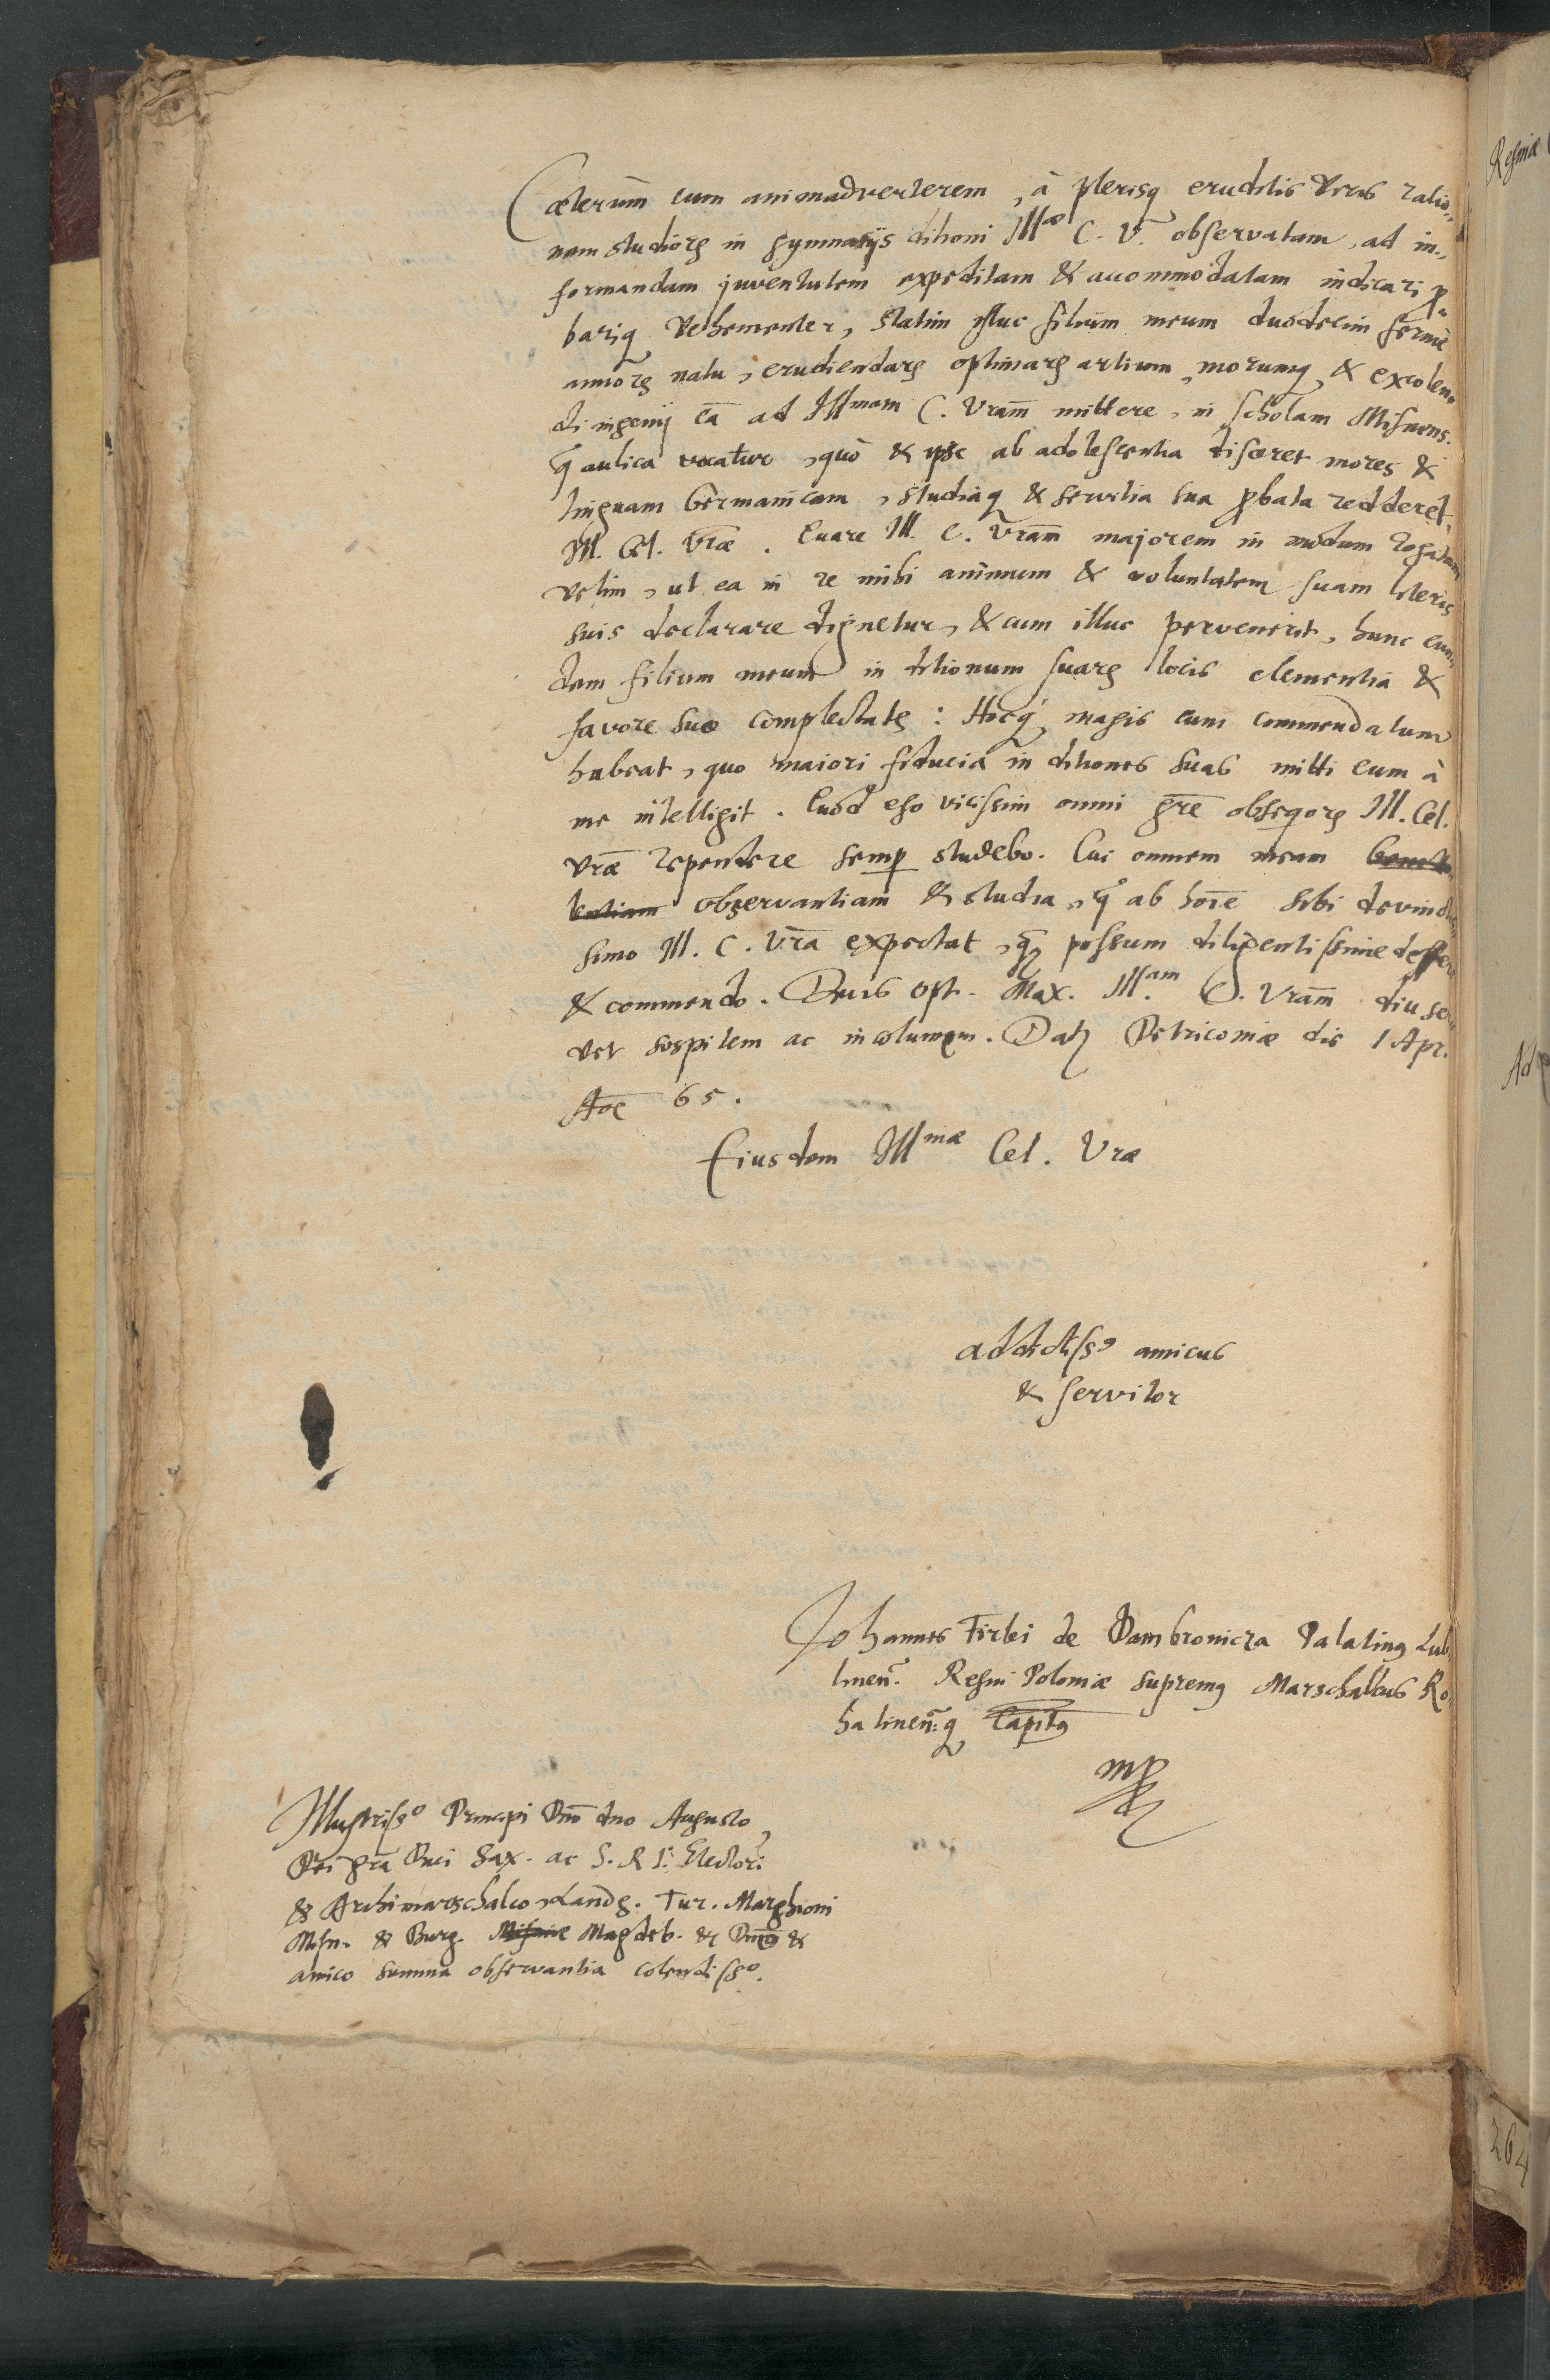 Cæterum cum animadverterem, à plerisq eruditis viris ratio-
nem studiorꝝ in gymnasijs ditioni Illæ C. V. observatam, ad in-
formandam juventutem expeditam & accommodatam indicari ꝓ-
bariq vehementer, statim istuc filium meum duodecim fermè
annorꝝ natu, erudiendarꝝ optimarꝝ artium, morumq, & excolen-
di ingenij cā ad Illmam C. Vram̄ mittere, in scholam Misnens.
q̄ aulica vocatur, quò & ipse ab adolescentia disceret mores &
linguam Germanicam, studiaq & servitia sua ꝓbata redderet
Ill. Cel. Vræ. Quare Ill. C. Vram̄ majorem in modum rogatam
velim, ut ea in re mihi animum & voluntatem suam literis
suis declarare dignetur, & cum illuc pervenerit, hunc eun-
dem filium meum in ditionum suarꝝ locis clementia &
favore suo complectatꝫ: Hocq magis eum commendatum
habeat, quo maiori fiducia in ditiones suas mitti eum à
me intelligit. Quod ego vicissim omni gr̄e obseqiorꝝ Ill. Cel.
Vræ rependere semꝑ studebo. Cui omnem meam
observantiam & studia, q ab hoīe sibi devinctis-
simo Ill. C. Vrā expectat, qꝫ possum diligentissime deffero
& commendo. Deus Opt. Max. Ill.am C. Vram̄ diu ser-
vet sospitem ac incolumem. Datꝫ Petricoviæ die 1 Apr.
Aōe 65.
Eiusdem Illmæ Cel. Vræ
addictissꝰ amicus
& servitor
Johannes Firlei de Dambrowicza Palatinꝰ Lub-
linen̄. Regni Poloniæ supremꝰ Marschallcus Ro-
hatinen̄:q Capitꝰ
mꝓ
Illustrisso Principi Dnō dno Augusto,
Dei grā Duci Sax. ac S. R I: Electori
& Archimarschalco, Landg. Tur. Marghioni
Misn. & Burg. Misniæ Magdeb. & Dnō &
amico summa observantia colendisso.
Regiæ
264